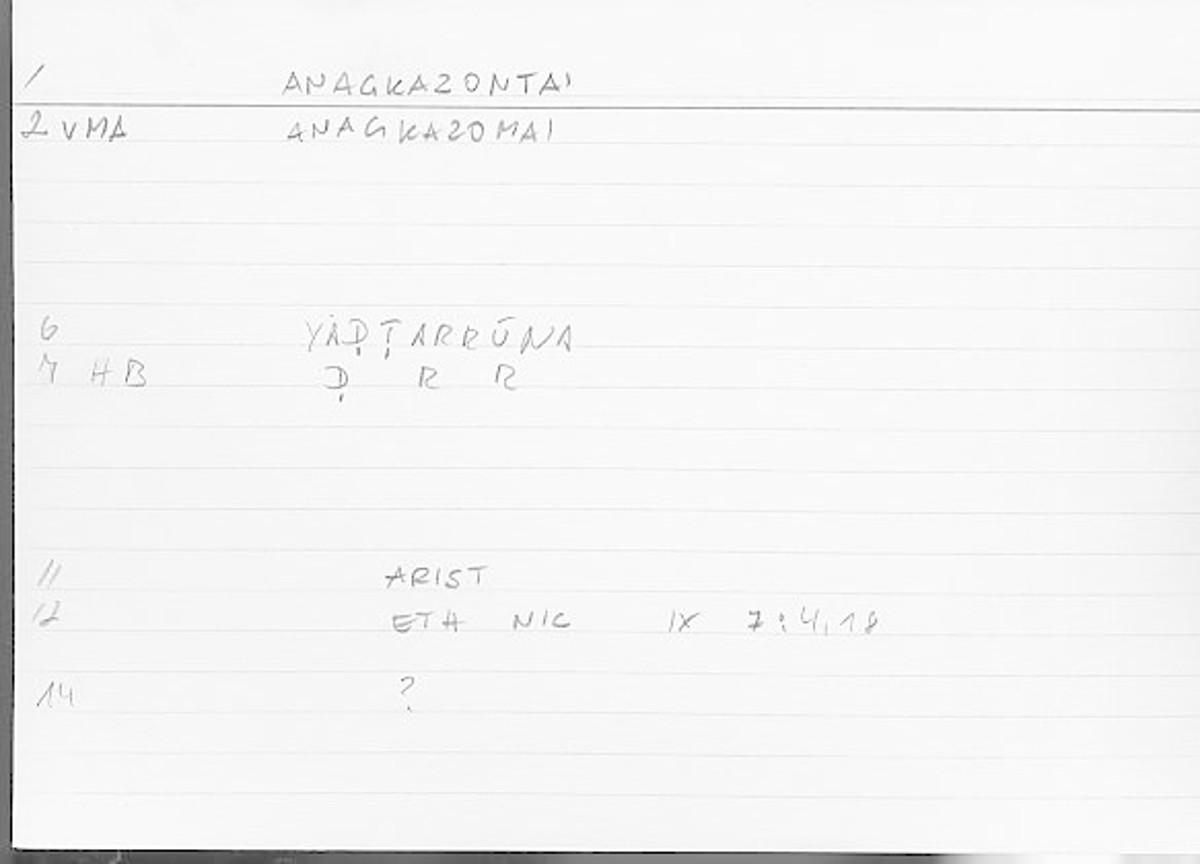 1 ANAGKAZONTAI
2 VMA ANAGKAZOMAI
6 YAḌṬARRŪNA
7 HB Ḍ R R
11 ARIST
12 ETH NIC IX 7:4,18
14 ?